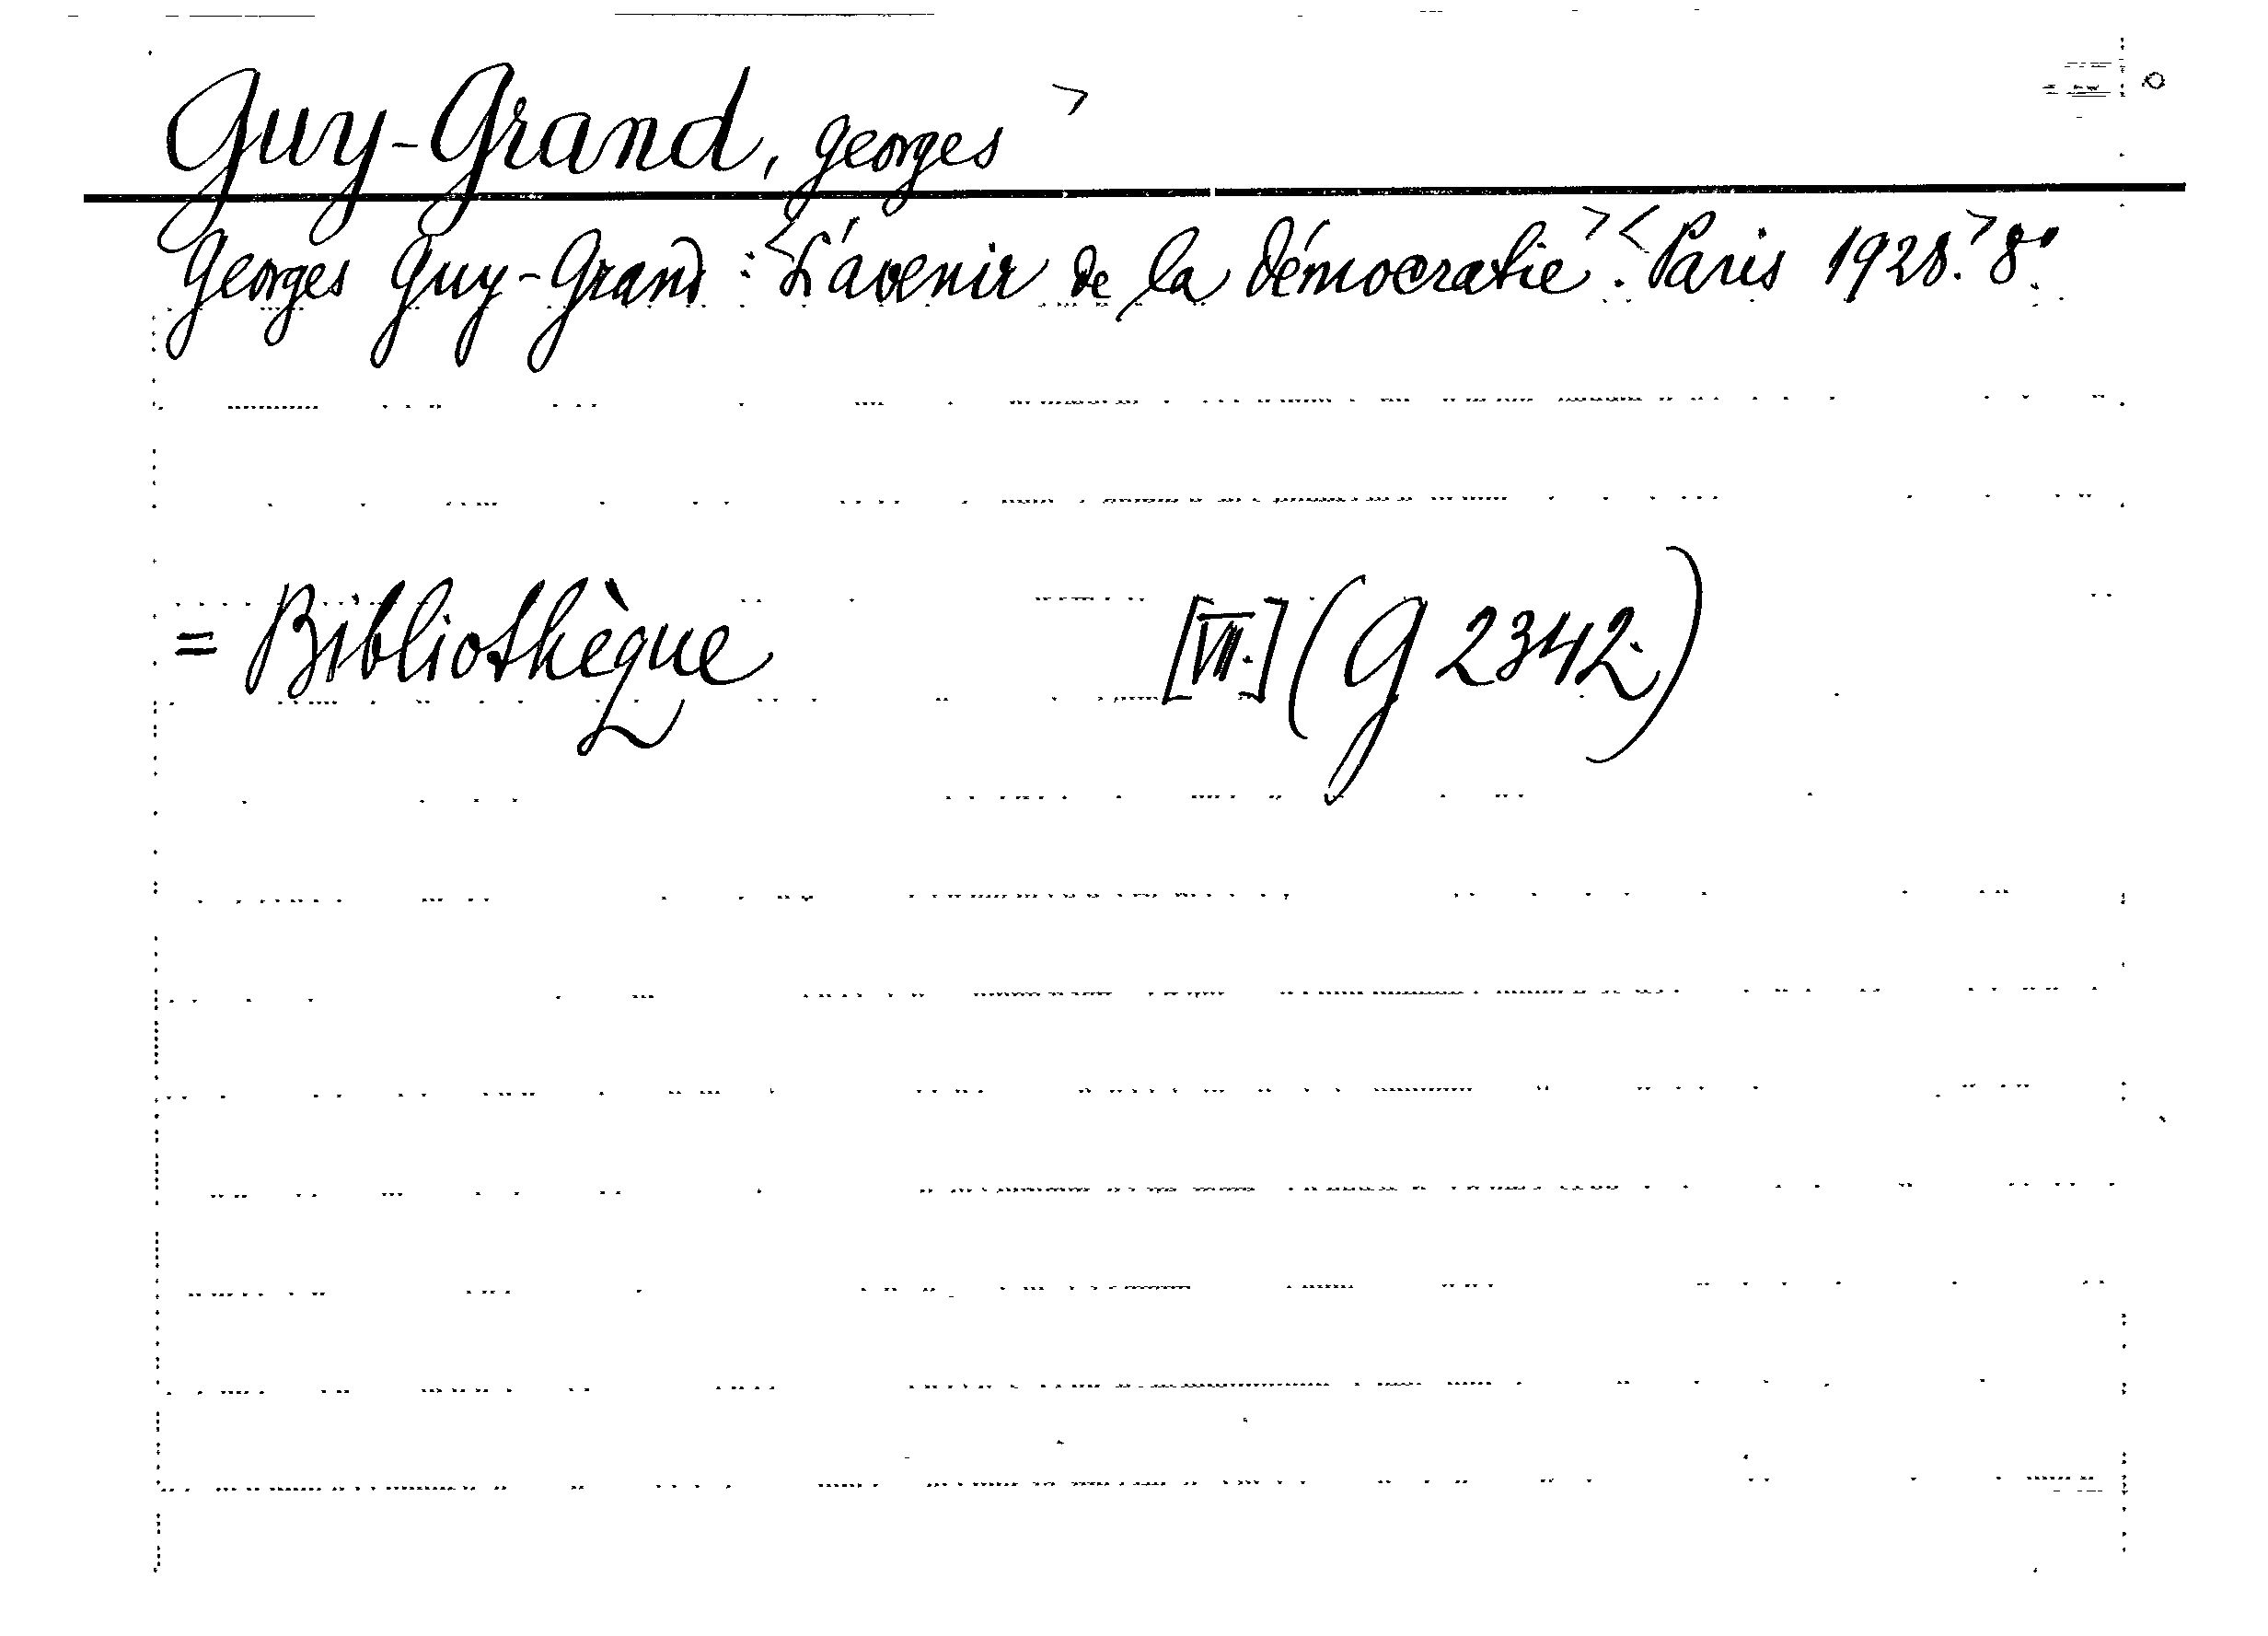 Guy-Grand, Georges >
Georges Guy-Grand: <L'avenir de la démocratie>. <Paris 1928.> 8°.
= Bibliothèque [VII.] (G 2342.)